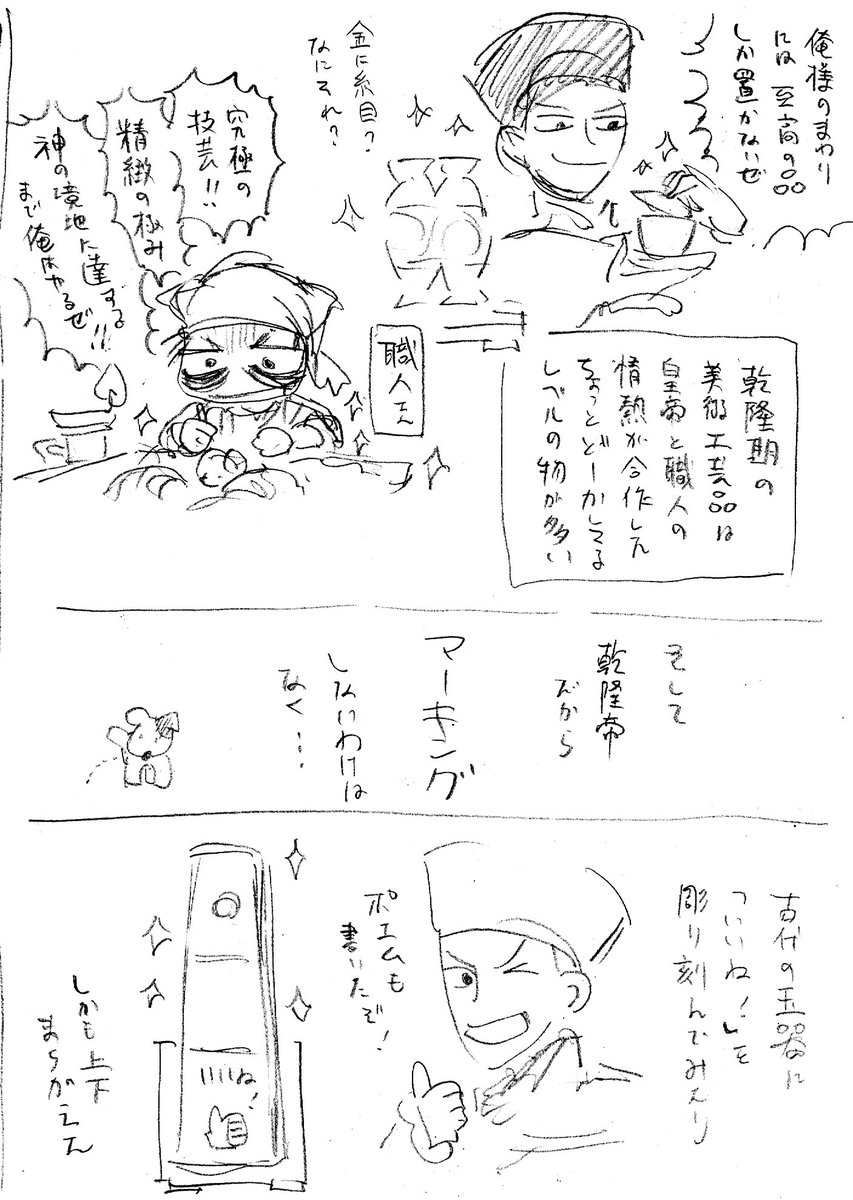 俺様のまわり
には至高の品
しか置かないぜ
金に糸目?
なにそれ?
究極の
技芸!!
精緻の極み
神の境地に達する
まで俺はやるぜ!!
職人さん
乾隆期の
美術工芸品は
皇帝と職人の
情熱が合作した
ちょっとどーかしてる
レベルの物が多い
そして
乾隆帝
だから
マーキング
しないわけは
なく…
古代の玉器に
「いいね!」を
彫り刻んでみたり
ポエムも
書いたぞ!
いいね!
しかも上下
まちがえた